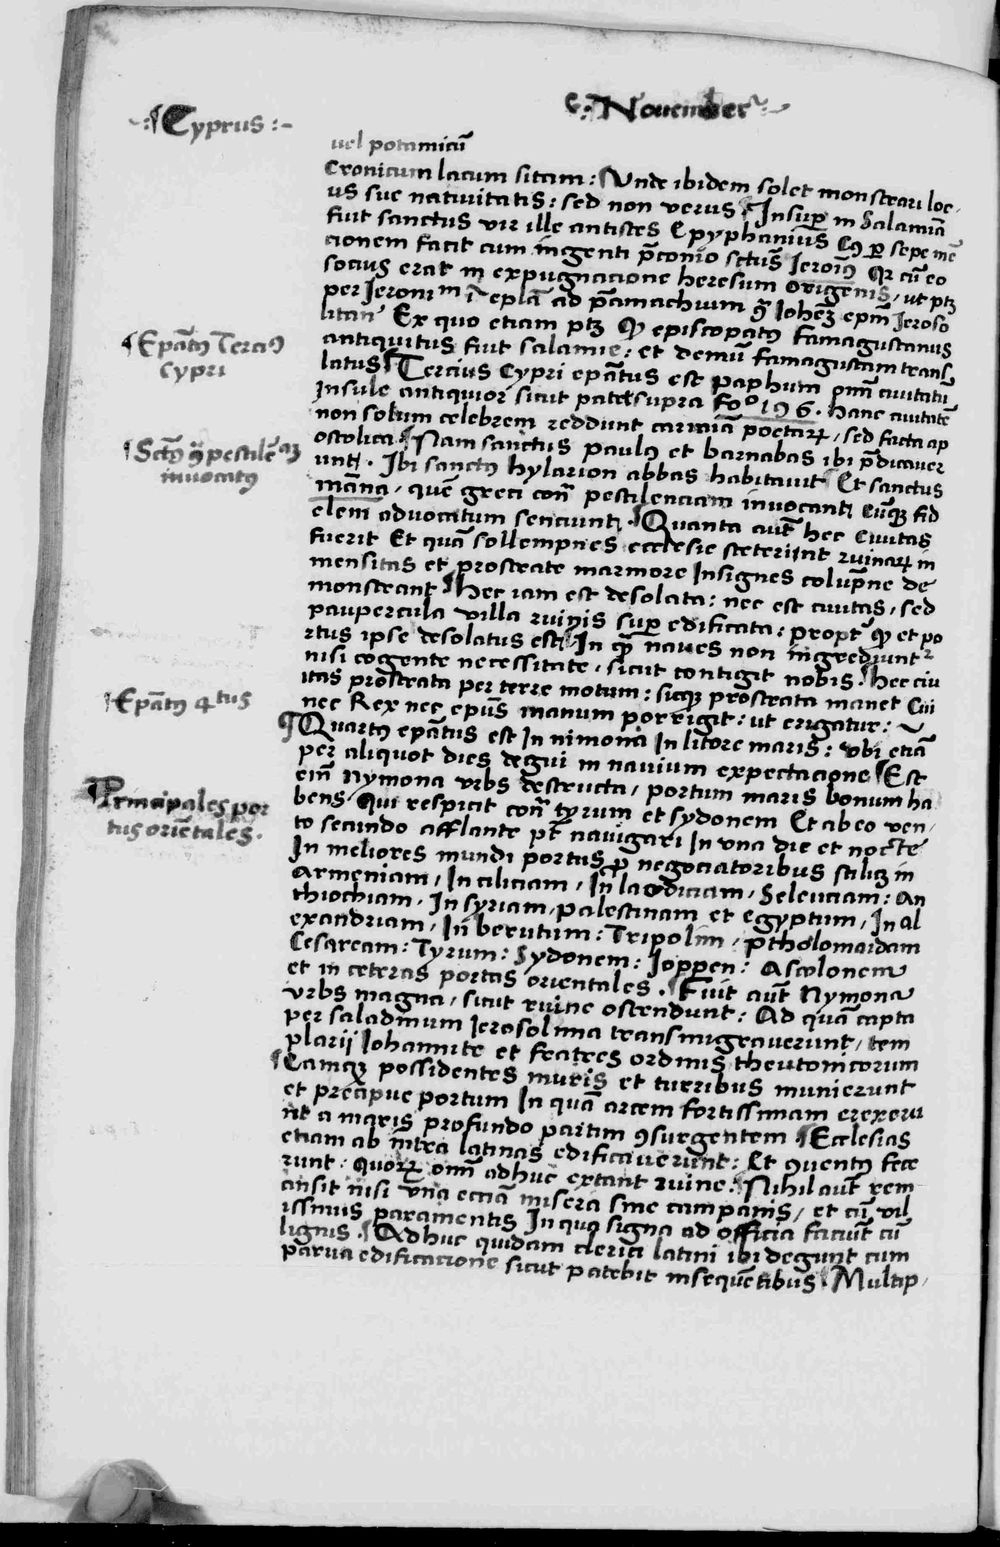 ·:¶Cyprus:-
¶:·November·
uel potamicū
Cronicum lacum sitam: ¶Vnde ibidem solet monstrari loc,
us sue nativitatis: sed non verus ¶Insup̄ in Salamīa
fuit sanctus vir ille antistes Epyphanius Cꝰ ꝑ sepe mē
cionem facit cum ingenti p̄conio sctūs Jeroīꝰ Qr cū eo
socius erat in expugnacione heresum origenis, ut ptꝫ
per Jeronimm ī eplā ad p̄amachium Johem̄ epm̄ Jeroso
litan Ex quo etiam ptꝫ ꝙ episcopatꝰ famagustanus
antiquitus fuit salamie: et demū famagustam trans,
latus ¶Tercius Cypri epātus est paphum om̄ civitatū
¶Epātꝰ Terciꝰ
Cypri
Insule antiquior sicut patet supra fo° 196. hanc civitatē
non solum celebrem reddunt carmīa poetarꝝ, sed facta ap
ostolica ¶Nam sanctus paulꝰ et barnabas ibi p̄dicaver
unt. Ibi sanctꝰ hylarion abbas habitavit ¶Et sanctus
¶Sctꝰ pestilē
invocatꝰ
māna, quē greci con pestilenciam invocant Cūqꝫ fid
elem advocatum senciunt. ¶Quanta aut̄ hec Civitas
fuerit Et quā sollempnes ecclesie steterint ruinarꝝ in
mensitas et prostrate marmore Insignes colupne de
monstrant ¶hec iam est desolata: nec est civitas, sed
paupercula villa ruinis sup̄ edificata: propt̄ ꝙ et po
rtus ipse desolatus est ¶In quē naves non ingrediunt
nisi cogente necessitate, sicut contigit nobis. ¶hec civ
itas prostrata per terre motum: sicqꝫ prostrata manet Cui
nec Rex nec epūs manum porrigit: ut erigatur:
¶Epātꝰ 4tus
¶Quartꝰ epātus est In nimona In litore maris: vbi etiā
per aliquot dies degui in navium expectacione ¶Est
eim̄ Nymona vrbs destructa, portum maris bonum ha
bens Qui respicit con tyrum et sydonem Et ab eo ven,
¶Principales por
tus oriētales.
to secundo afflante pt̄ navigari In vna die et nocte
In meliores mundi portus p̄ negociatoribus scilicꝫ in
Armeniam, In ciliciam, In laodiciam, Seleuciam: An
thiochiam, In syriam, palestinam et egyptum, In al
exandriam, In berutum: Tripolim, ptholomaidam
Cesaream: Tyrum: Sydonem: Joppen: Ascolonem
et in ceteras portas orientales. ¶Fuit aut̄ Nymona
vrbs magna, sicut ruine ostendunt: Ad quā capta
per saladinum Jerosolima transmigraverunt, tem
plarii Johannite et fratres ordinis theutonicorum
¶Eamqꝫ possidentes muris et turribus munierunt
et precipue portum In quā arcem fortissimam erexeru
nt a maris profundo partim ꝯsurgentem ¶Ecclesias
etiam ab intra latinas edificaverunt: Et ꝯventꝰ fece
runt: quorꝝ om̄ adhuc extant ruine. ¶Nihil aut̄ rem
ansit nisi vna ecciā misera sine campanis, et cū vil
issimis paramentis In qua signa ad officia faciūt cū
lignis. ¶Adhuc quidam clerici latini ibi degunt cum
parva edificacione sicut patebit in sequētibus ¶Multip,